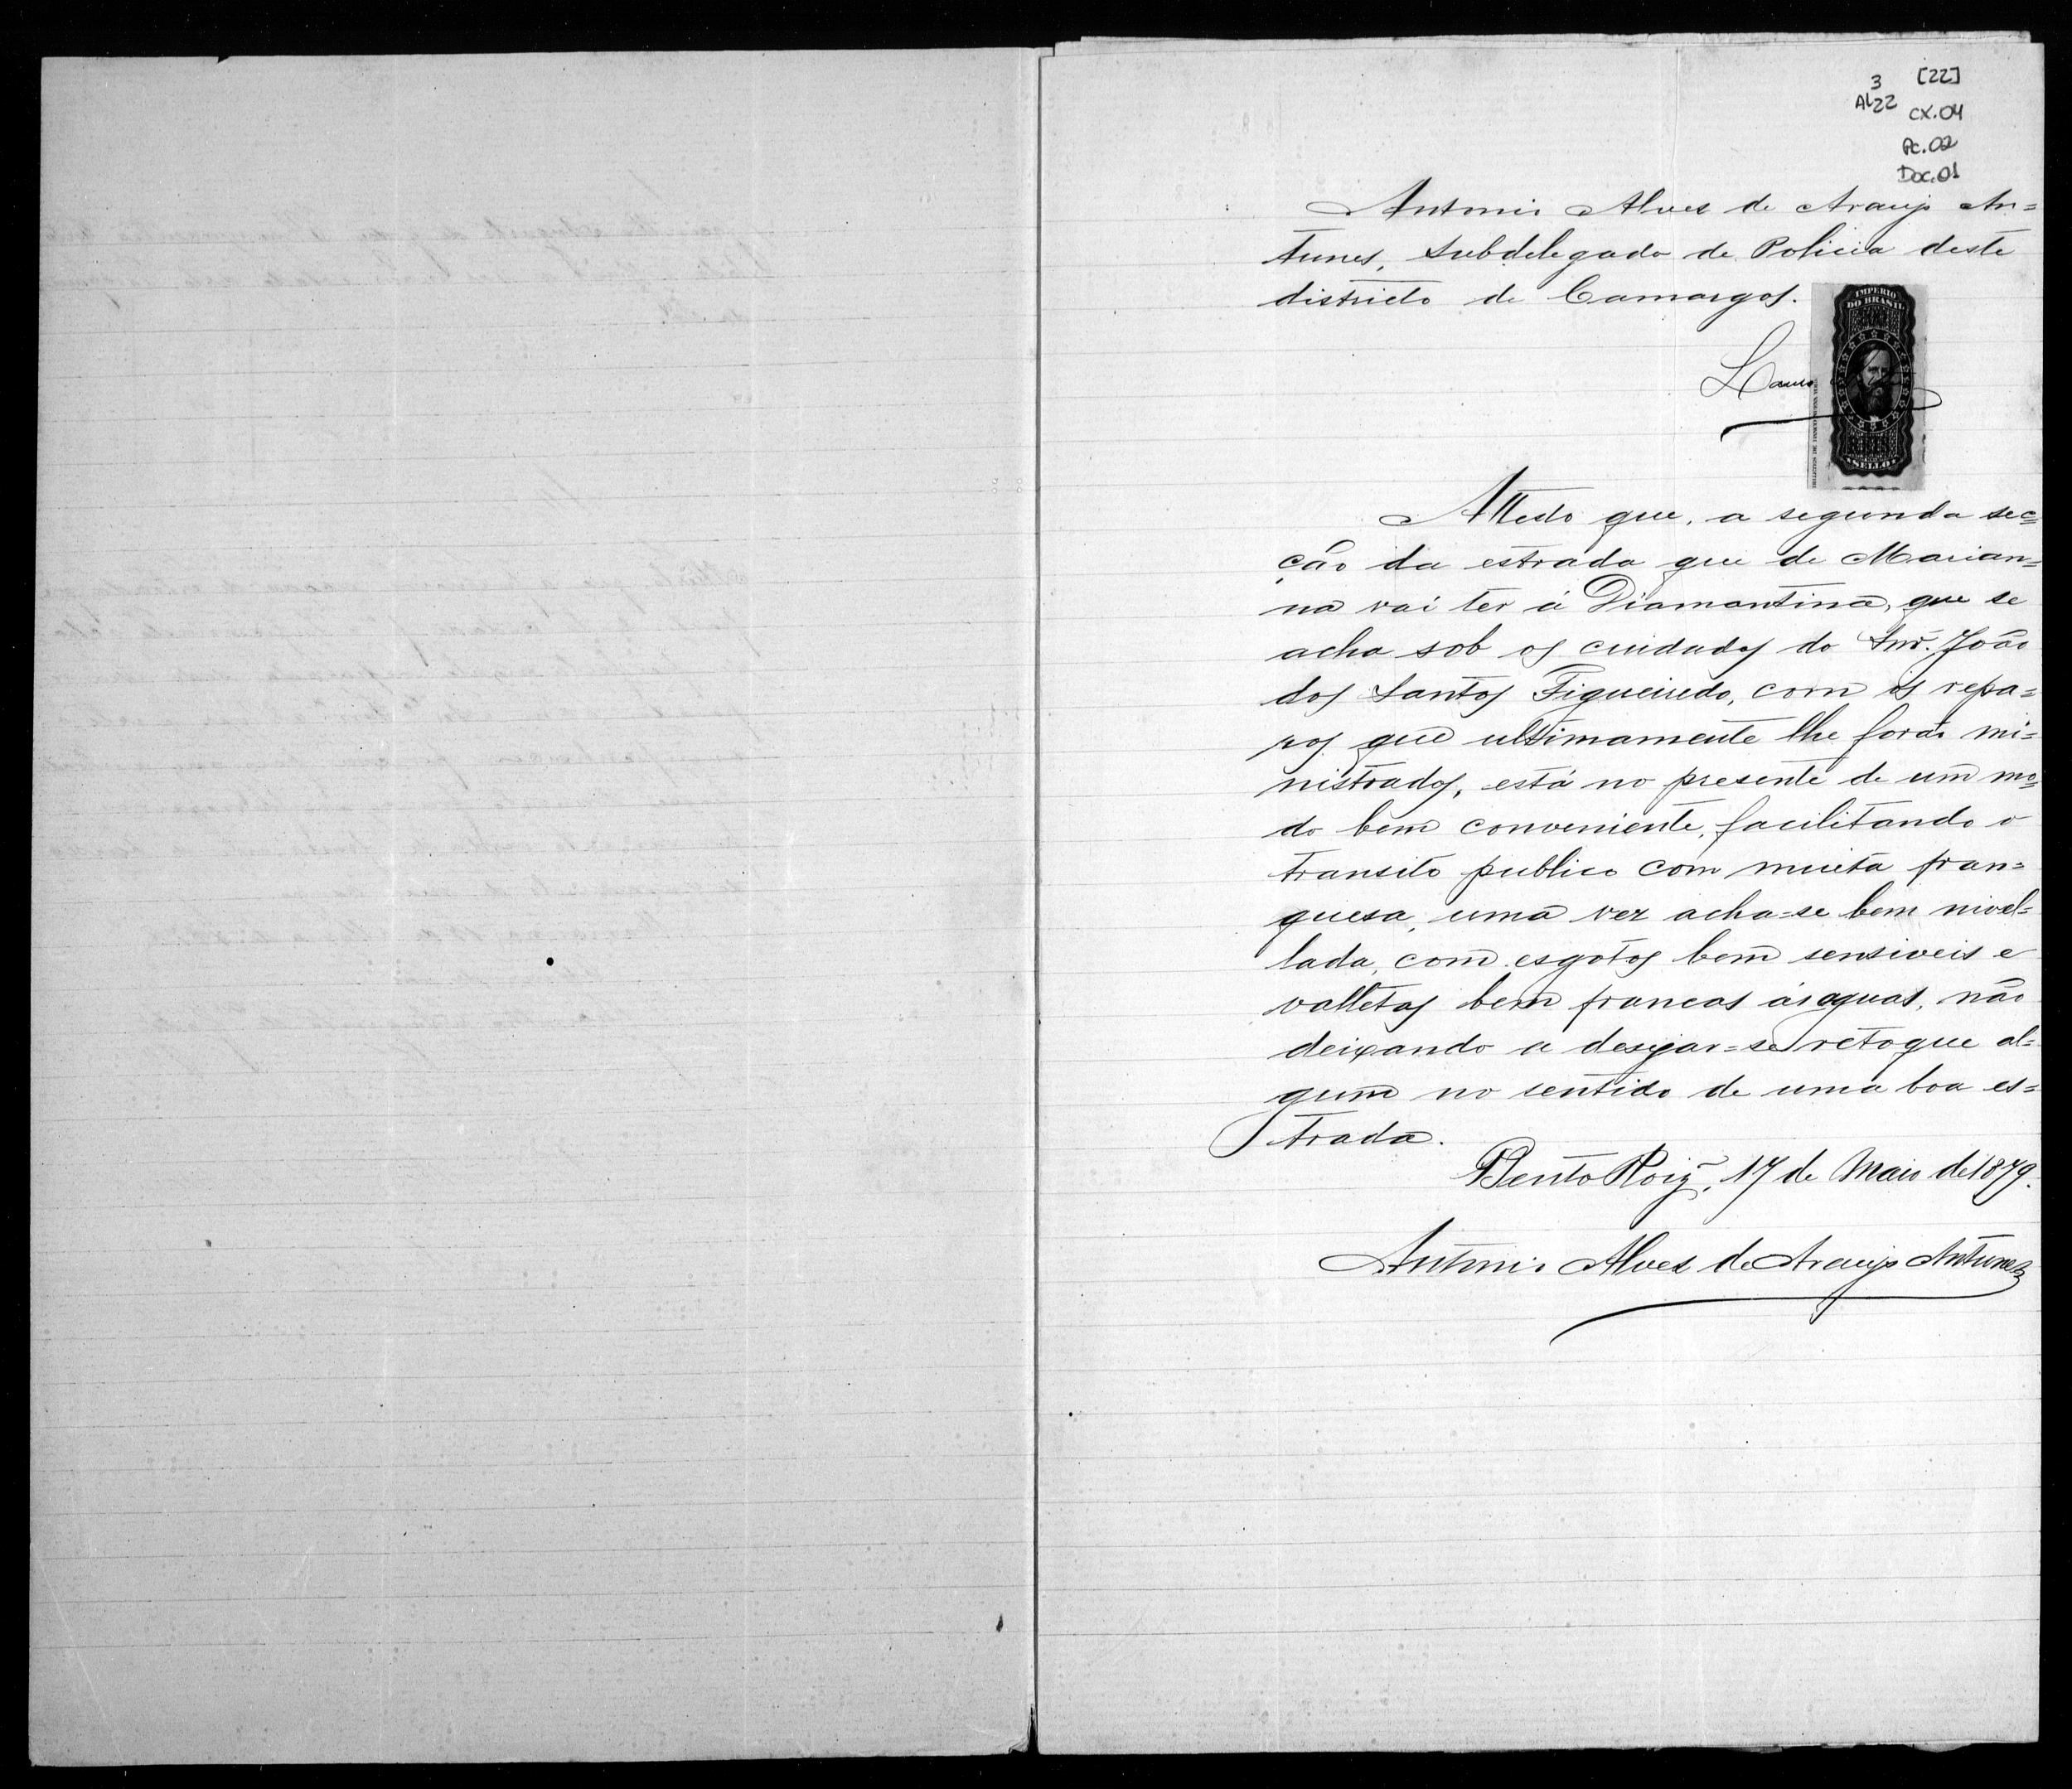 3 [22]
Al 22 CX.04
Pc.02
Doc.01
Antonio Alves de Araujo An=
tunes, Subdelegado de Policia deste
districto de Camargos.
IMPERIO
DO BRASIL
SELLO
Attesto que, a segunda sec=
ção da estrada que de Marian=
na vai ter á Diamantina, que se
acha sob os cuidados do Snr. João
dos Santos Figueiredo, com os repa=
ros que ultimamente lhe forão mi=
nistrados, está no presente de um mo=
do bem conveniente, facilitando o
transito publico com muita fran=
quesa, uma vez acha-se bem nivel=
lada, com esgotos bem sensiveis e
valletas bem francas ás aguas, não
deixando a desejar=se retoque al=
gum no sentido de uma boa es=
trada.
Bento Roiz, 17 de Maio de 1879.
Antonio Alves de Araujo Antunes